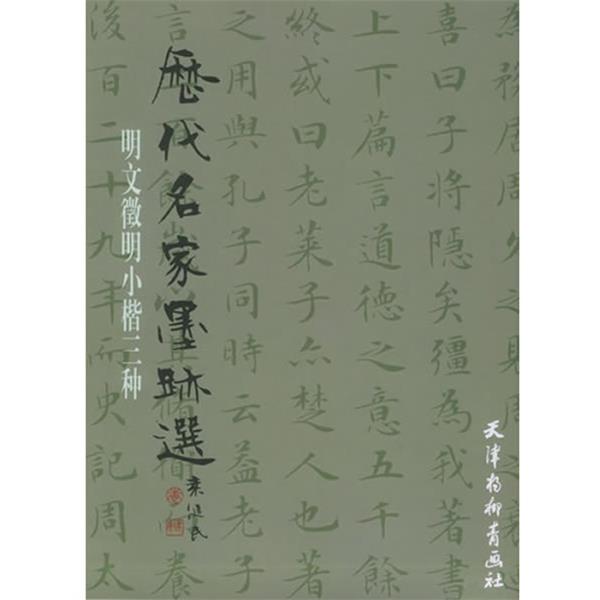 歷代名家墨跡選
明文徵明小楷三种
天津杨柳青画社
為務居周久之見周
喜曰子將隱矣彊為我著
上下篇言道德之意五千餘
終或曰老萊子亦楚人也著
之用與孔子同時云蓋老子
後百二十九年而史記周太